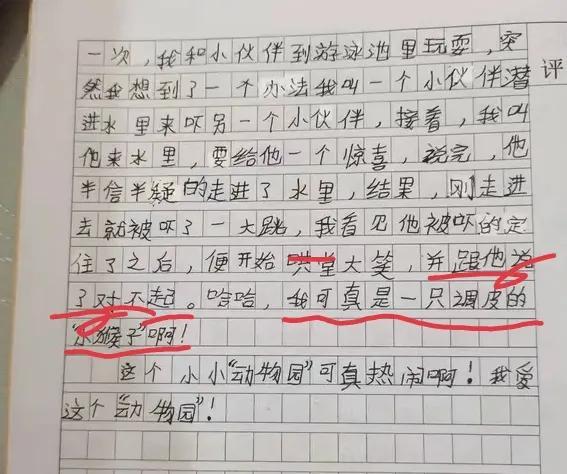 一次，我和小伙伴到游泳池里玩耍，突
然我想到了一个办法我叫一个小伙伴潜
进水里来吓另一个小伙伴，接着，我叫
他来水里，要给他一个惊喜，说完，他
半信半疑的走进了水里，结果，刚走进
去就被吓了一大跳，我看见他被吓的定
住了之后，便开始哄堂大笑，并跟他说
了对不起。哈哈，我可真是一只调皮的
“小猴子”啊！
这个小小“动物园”可真热闹啊！我爱
这个“动物园”！
评